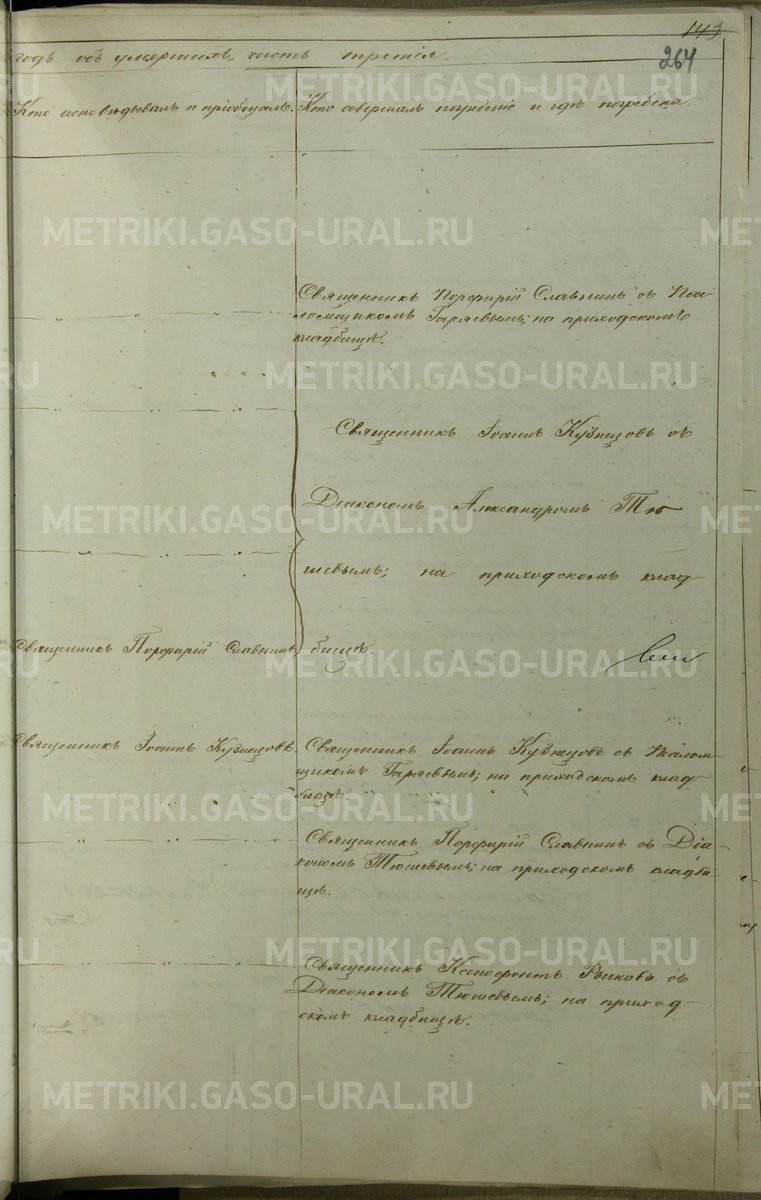 143
264
годъ объ умершихъ, часть третія.
Кто исповѣдывалъ и пріобщалъ.
Кто совершалъ погребеніе и гдѣ погребены.
METRIKI.GASO-URAL.RU
Священникъ Порфирій Славнинъ съ Пса-
ломщикомъ Гаряевымъ; на приходскомъ
кладбищѣ.
METRIKI.GASO-URAL.RU
Священникъ Іоаннъ Кузнецовъ съ
Діакономъ Александромъ Тю
METRIKI.GASO-URAL.RU
шевымъ; на приходскомъ клад-
Священникъ Порфирій Славнинъ
бищѣ.
METRIKI.GASO-URAL.RU
Священникъ Іоаннъ Кузнецовъ.
Священникъ Іоаннъ Кузнецовъ съ Псалом-
щикомъ Гаряевымъ; на приходскомъ клад-
бищѣ.
METRIKI.GASO-URAL.RU
Священникъ Порфирій Славнинъ съ Діа-
кономъ Тюшевымъ; на приходскомъ кладби-
щѣ.
METRIKI.GASO-URAL.RU
Священникъ Ксенофонтъ съ
Діакономъ Тюшевымъ; на приход-
скомъ кладбищѣ.
METRIKI.GASO-URAL.RU